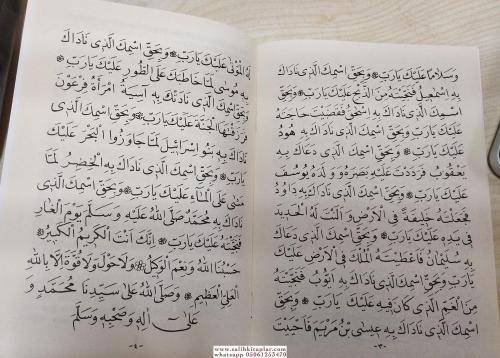 وَسَلَامًا عَلَيْكَ يَارَبِّ وَبِحَقِّ اسْمِكَ الَّذِى نَادَاكَ
بِهِ اِسْمٰعِيلُ فَنَجَّيْتَهُ مِنَ الذَّبْحِ عَلَيْكَ يَارَبِّ وَبِحَقِّ
اسْمِكَ الَّذِى نَادَاكَ بِهِ اِسْحٰقُ فَقَضَيْتَ حَاجَتَهُ
عَلَيْكَ يَارَبِّ وَبِحَقِّ اسْمِكَ الَّذِى نَادَاكَ بِهِ هُودُ
عَلَيْكَ يَارَبِّ وَبِحَقِّ اسْمِكَ الَّذِى دَعَاكَ بِهِ
يَعْقُوبُ فَرَدَدْتَ عَلَيْهِ بَصَرَهُ وَ لَدَهُ يُوسُفَ
عَلَيْكَ يَارَبِّ وَبِحَقِّ اسْمِكَ الَّذِى نَادَاكَ بِهِ دَاوُدُ
فَجَعَلْتَهُ خَلِيفَةً فِى الْاَرْضِ وَاَلَنْتَ لَهُ الْحَدِيدَ
فِى يَدِهِ عَلَيْكَ يَارَبِّ وَبِحَقِّ اسْمِكَ الَّذِى دَعَاكَ
بِهِ سُلَيْمَانُ فَاَعْطَيْتَهُ الْمُلْكَ فِى الْاَرْضِ عَلَيْكَ
يَارَبِّ وَبِحَقِّ اسْمِكَ الَّذِى نَادَاكَ بِهِ اَيُّوبُ فَنَجَّيْتَهُ
مِنَ الْغَمِّ الَّذِى كَانَ فِيهِ عَلَيْكَ يَارَبِّ وَبِحَقِّ
اسْمِكَ الَّذِى نَادَاكَ بِهِ عِيسَى بْنُ مَرْيَمَ فَاَحْيَيْتَ
-٣-
لَهُ الْمَوْتٰى عَلَيْكَ يَارَبِّ وَبِحَقِّ اسْمِكَ الَّذِى نَادَاكَ
بِهِ مُوسٰى لَمَّا خَاطَبَكَ عَلَى الطُّورِ عَلَيْكَ يَارَبِّ
وَبِحَقِّ اسْمِكَ الَّذِى نَادَتْكَ بِهِ اٰسِيَةُ امْرَأَةُ فِرْعَوْنَ
فَرَزَقْتَهَا الْجَنَّةَ عَلَيْكَ يَارَبِّ وَبِحَقِّ اسْمِكَ الَّذِى
نَادَاكَ بِهِ بَنُو اِسْرَائِيلَ لَمَّا جَاوَزُوا الْبَحْرَ عَلَيْكَ
يَارَبِّ وَبِحَقِّ اسْمِكَ الَّذِى نَادَاكَ بِهِ الْخَضِرُ لَمَّا
مَشٰى عَلَى الْمَاءِ عَلَيْكَ يَارَبِّ وَبِحَقِّ اسْمِكَ الَّذِى
نَادَاكَ بِهِ مُحَمَّدٌ صَلَّى اللّٰهُ عَلَيْهِ وَ سَلَّمَ يَوْمَ الْغَارِ
فَنَجَّيْتَهُ عَلَيْكَ يَارَبِّ اِنَّكَ اَنْتَ الْكَرِيمُ الْكَبِيرُ
حَسْبُنَا اللّٰهُ وَنِعْمَ الْوَكِيلُ وَلَا حَوْلَ وَلَا قُوَّةَ اِلَّا بِاللّٰهِ
الْعَلِىِّ الْعَظِيمِ وَصَلَّى اللّٰهُ عَلٰى سَيِّدِنَا مُحَمَّدٍ وَ
عَلٰى اٰلِهِ وَصَحْبِهِ وَسَلَّمَ
-٤-
www.salihkitaplar.com
whatsapp 05061253470